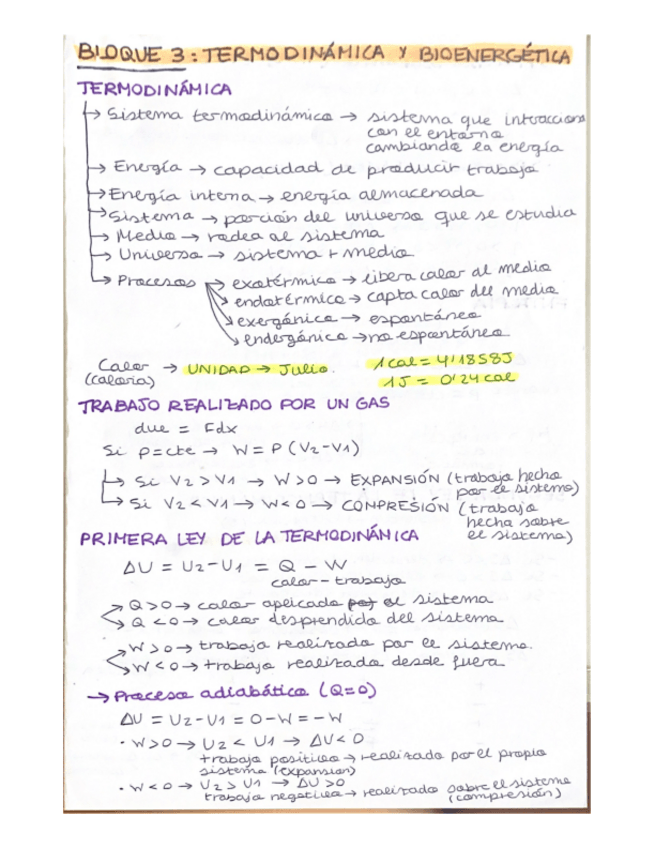 BLOQUE 3: TERMODINÁMICA Y BIOENERGÉTICA
TERMODINÁMICA
→ Sistema termodinámico → sistema que interacciona
con el entorno
cambiando la energía
→ Energía → capacidad de producir trabajo
→ Energía interna → energía almacenada
→ Sistema → porción del universo que se estudia
→ Medio → rodea al sistema
→ Universo → sistema + medio
→ Procesos → exotérmico → libera calor al medio
→ endotérmico → capta calor del medio
→ exergónico → espontáneo
→ endergónico → no espontáneo
Calor → UNIDAD → Julio. 1 cal = 4'1858J
(caloría) 1J = 0'24 cal
TRABAJO REALIZADO POR UN GAS
dw = Fdx
Si p=cte → W = P (V2-V1)
→ Si V2 > V1 → W>0 → EXPANSIÓN (trabajo hecho
por el sistema)
→ Si V2 < V1 → W<0 → COMPRESIÓN (trabajo
hecho sobre
el sistema)
PRIMERA LEY DE LA TERMODINÁMICA
ΔU = U2-U1 = Q - W
calor - trabajo
→ Q>0 → calor aplicado por el sistema
→ Q<0 → calor desprendido del sistema
→ W>0 → trabajo realizado por el sistema.
→ W<0 → trabajo realizado desde fuera
→ Proceso adiabático (Q=0)
ΔU = U2-U1 = 0-W = -W
· W>0 → U2 < U1 → ΔU<0
trabajo positivo → realizado por el propio
sistema (expansion)
· W<0 → U2 > U1 → ΔU>0
trabajo negativo → realizado sobre el sistema
(compresión)